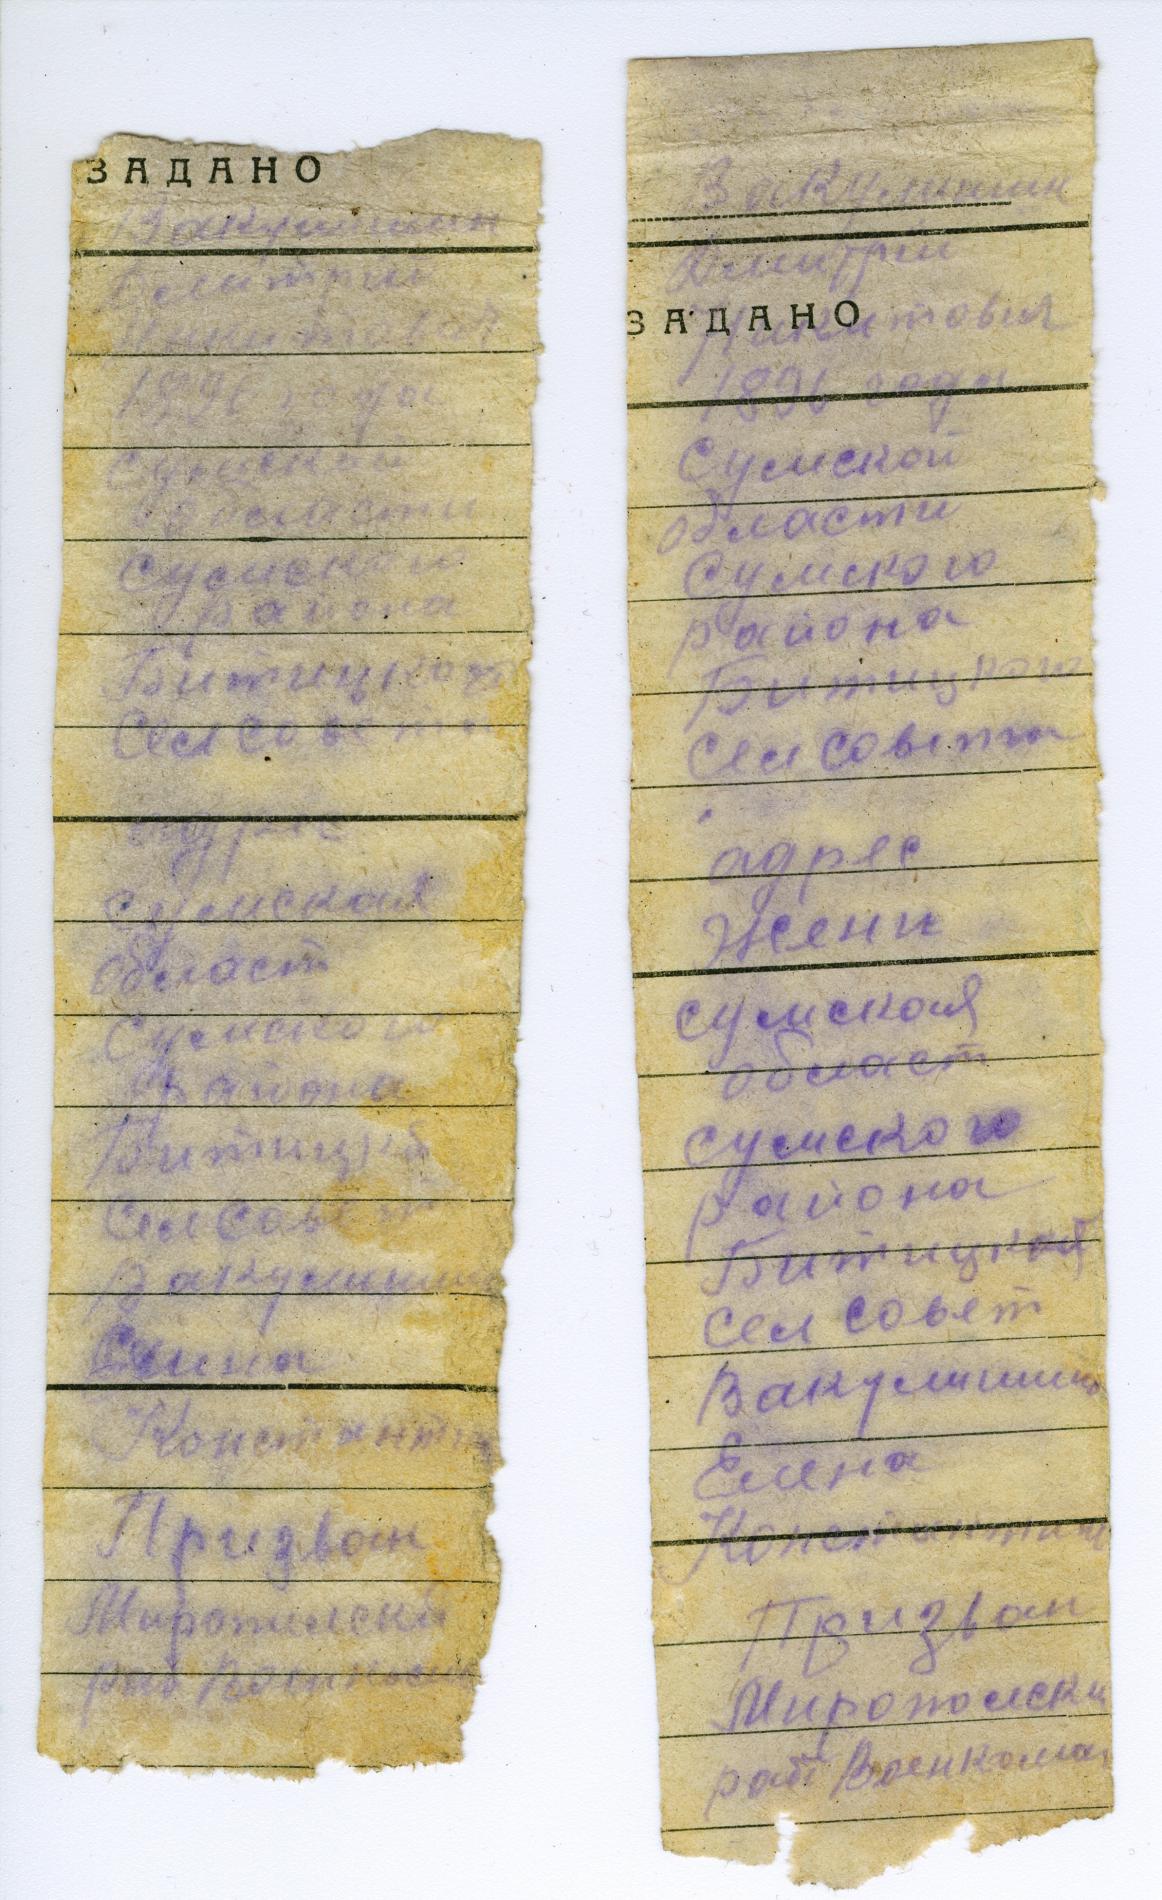 ЗАДАНО
Вакулишин
Дмитрий
Никитович
1896 года
Сумской
области
Сумского
района
Битицкого
Селсовета
адрес
сумская
област
Сумского
района
Битицкой
Селсовет
Вакулишин
Елена
Константин
Призван
Миропилский
рай Военкома
Вакулишин
Дмитрий
ЗАДАНО
Никитович
1896 года
Сумской
области
Сумского
района
Битицкого
селсовета
адрес
Жени
сумская
област
сумского
района
Битицкой
сел совет
Вакулишин
Елена
Константин
Призван
Миропольски
рай Военкома